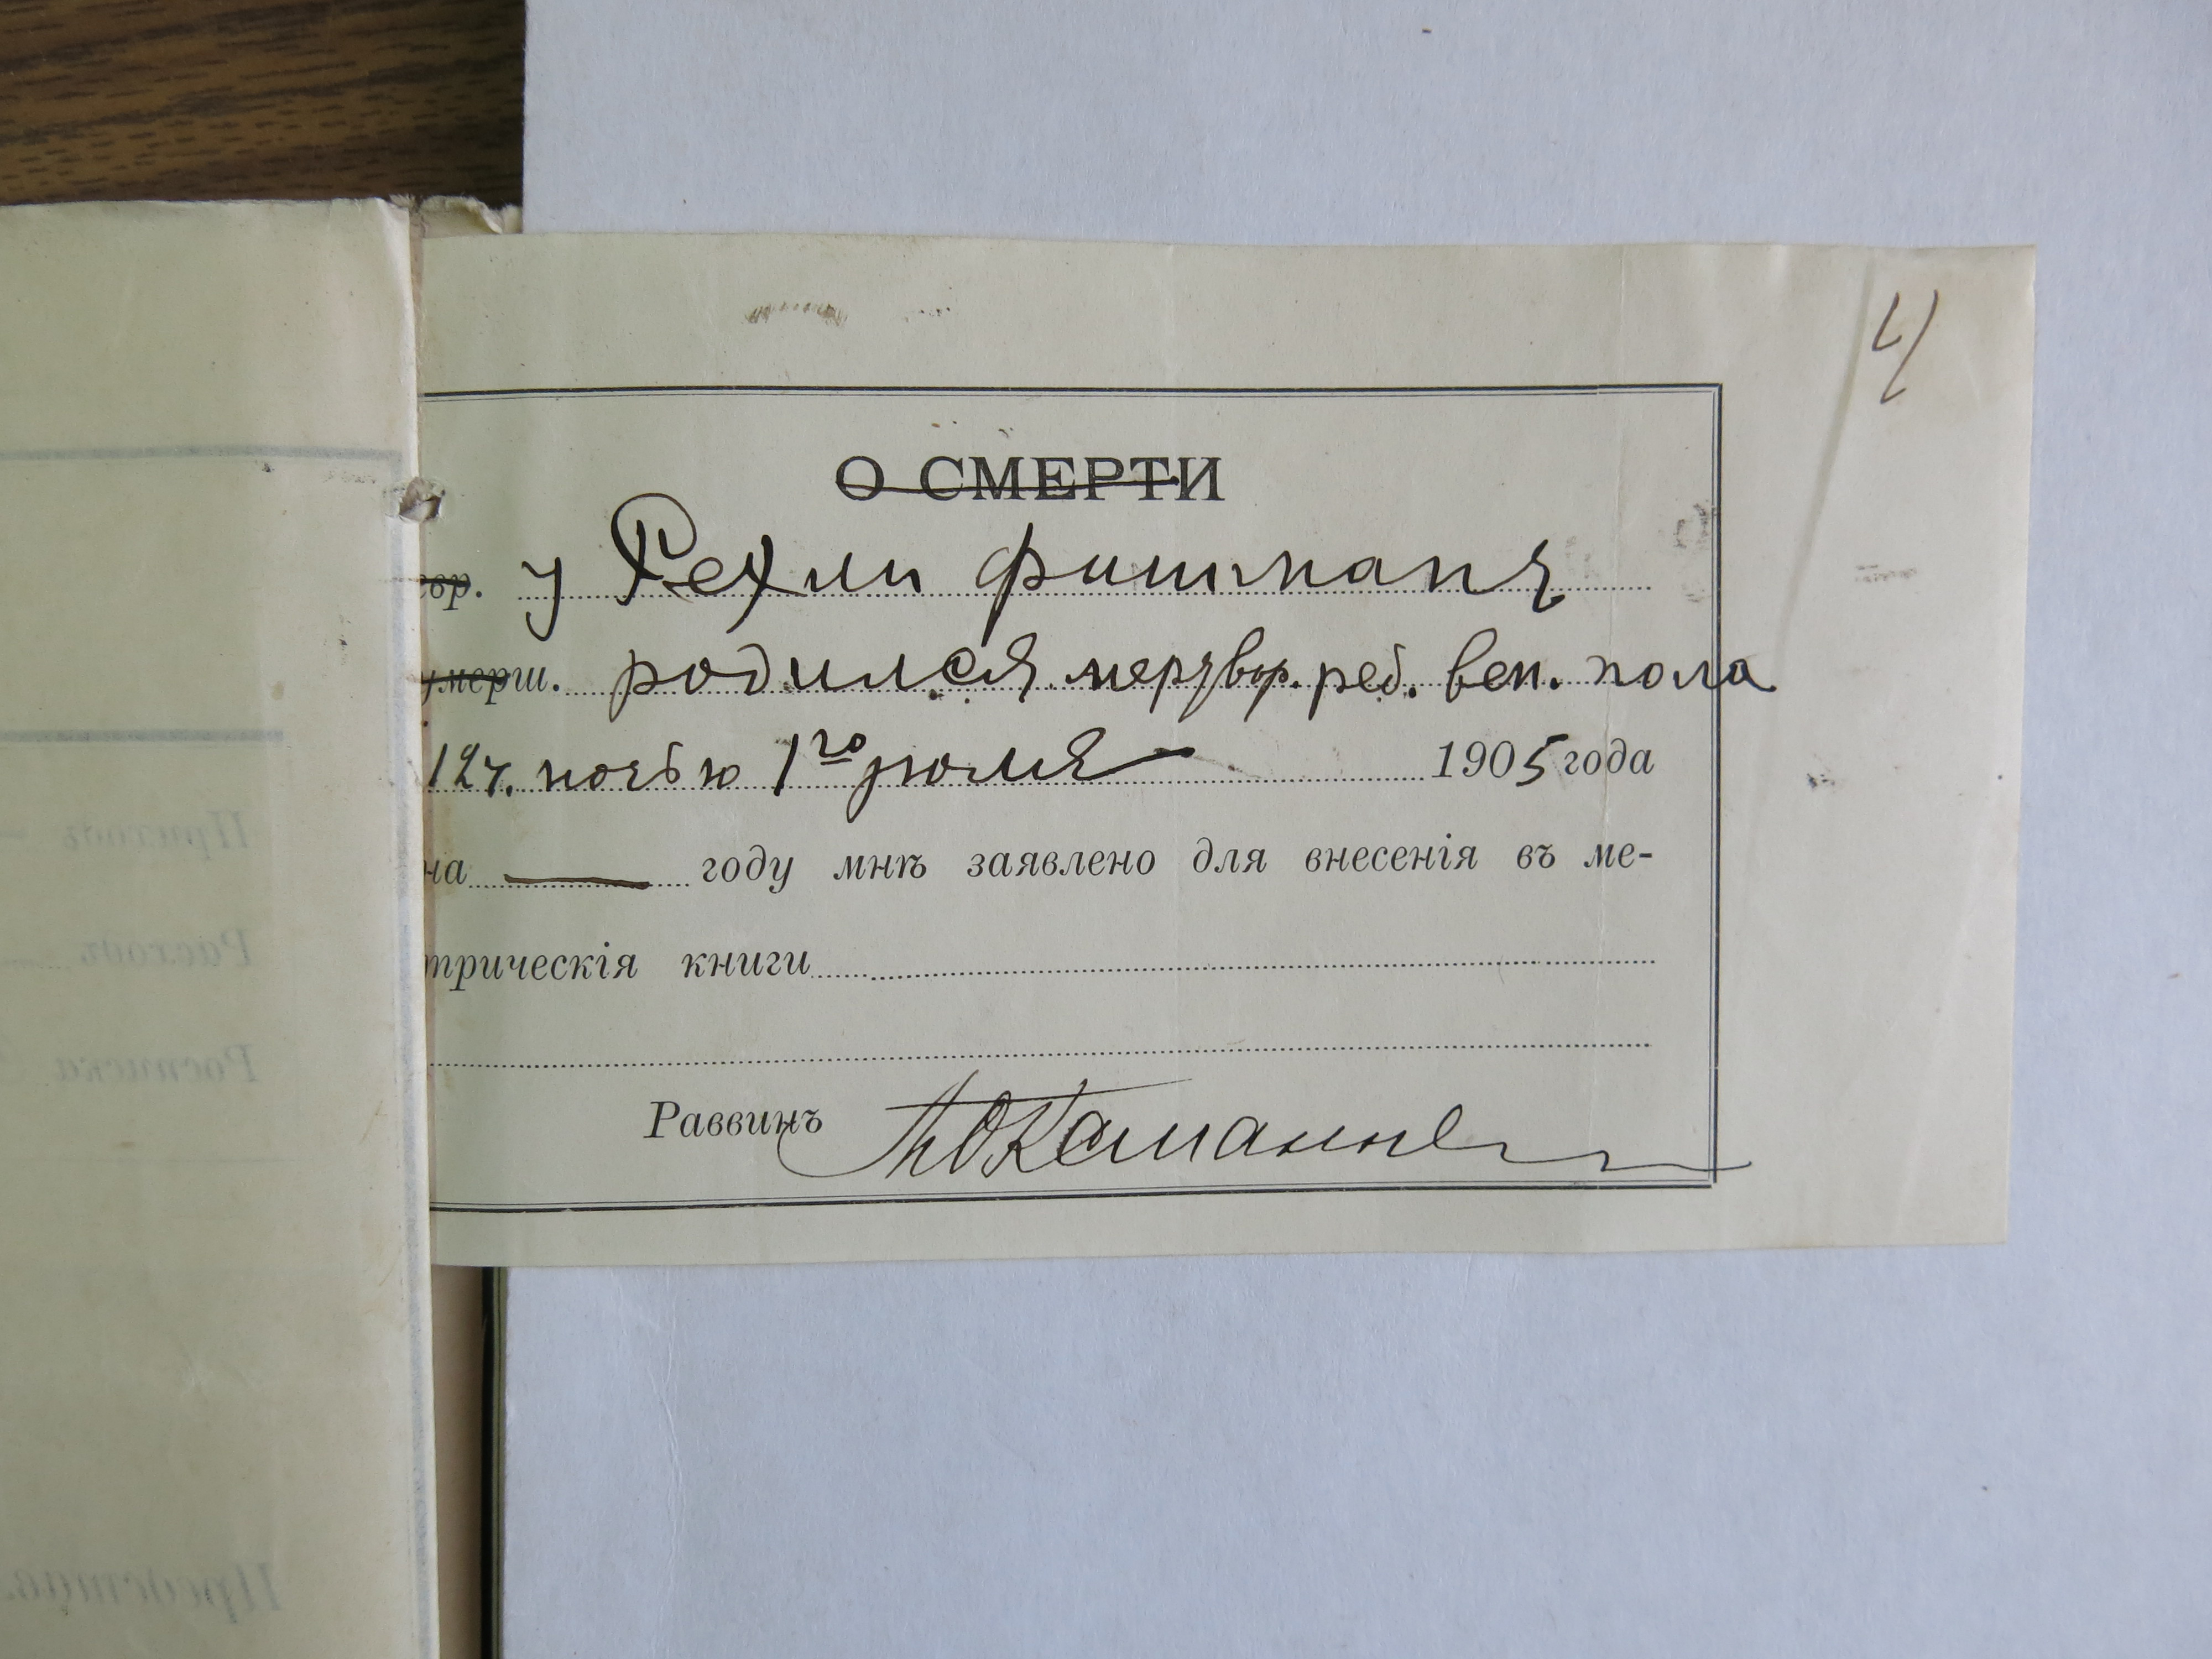 4
О СМЕРТИ
евр. у Рехли Фишманъ
умерш. родился мертвор. реб. жен. пола
12 ч. ночью 1го июля 1905 года
на — году мнѣ заявлено для внесенія въ ме-
трическія книги
Раввинъ
Приходъ
Расходъ
Росписка